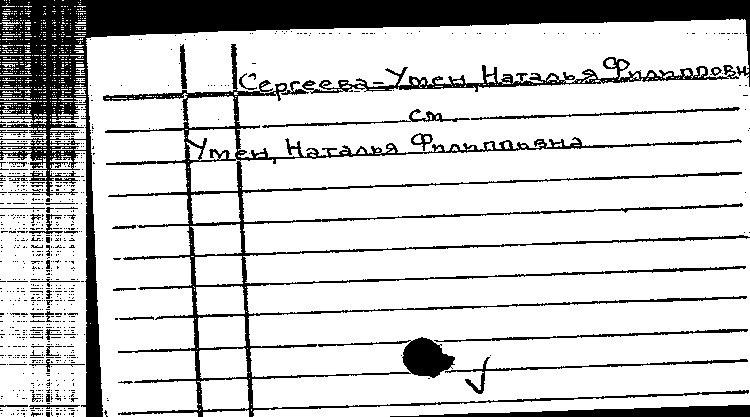 Сергеева-Умен, Наталья Филипповн
см.
Умен, Наталья Филипповна